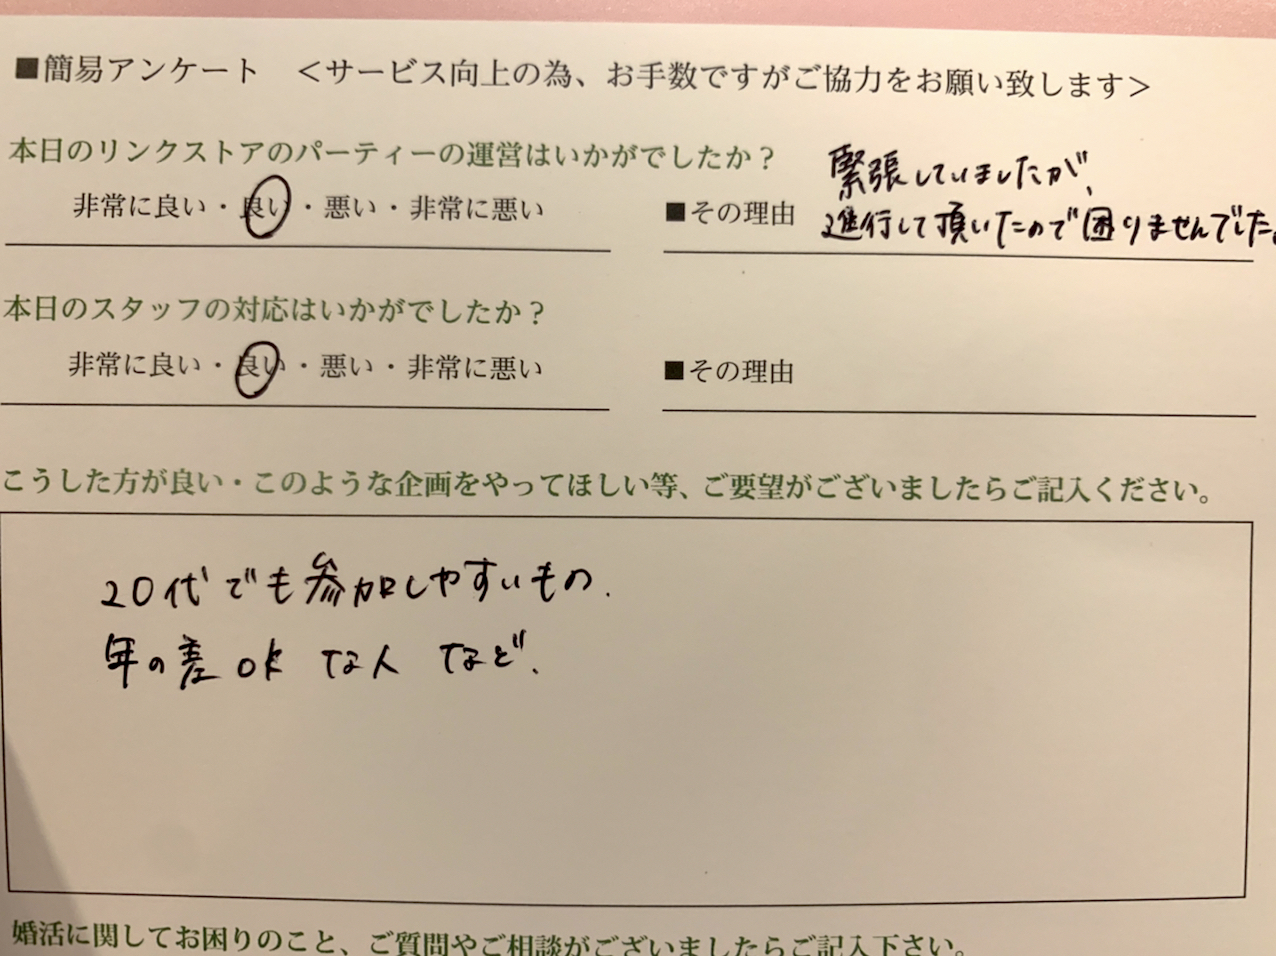 ■簡易アンケート　＜サービス向上の為、お手数ですがご協力をお願い致します＞
本日のリンクストアのパーティーの運営はいかがでしたか？
非常に良い・良い・悪い・非常に悪い
■その理由
緊張していましたが、
進行して頂いたので困りませんでした。
本日のスタッフの対応はいかがでしたか？
非常に良い・良い・悪い・非常に悪い
■その理由
こうした方が良い・このような企画をやってほしい等、ご要望がございましたらご記入ください。
20代でも参加しやすいもの.
年の差OKな人 など.
婚活に関してお困りのこと、ご質問やご相談がございましたらご記入下さい。